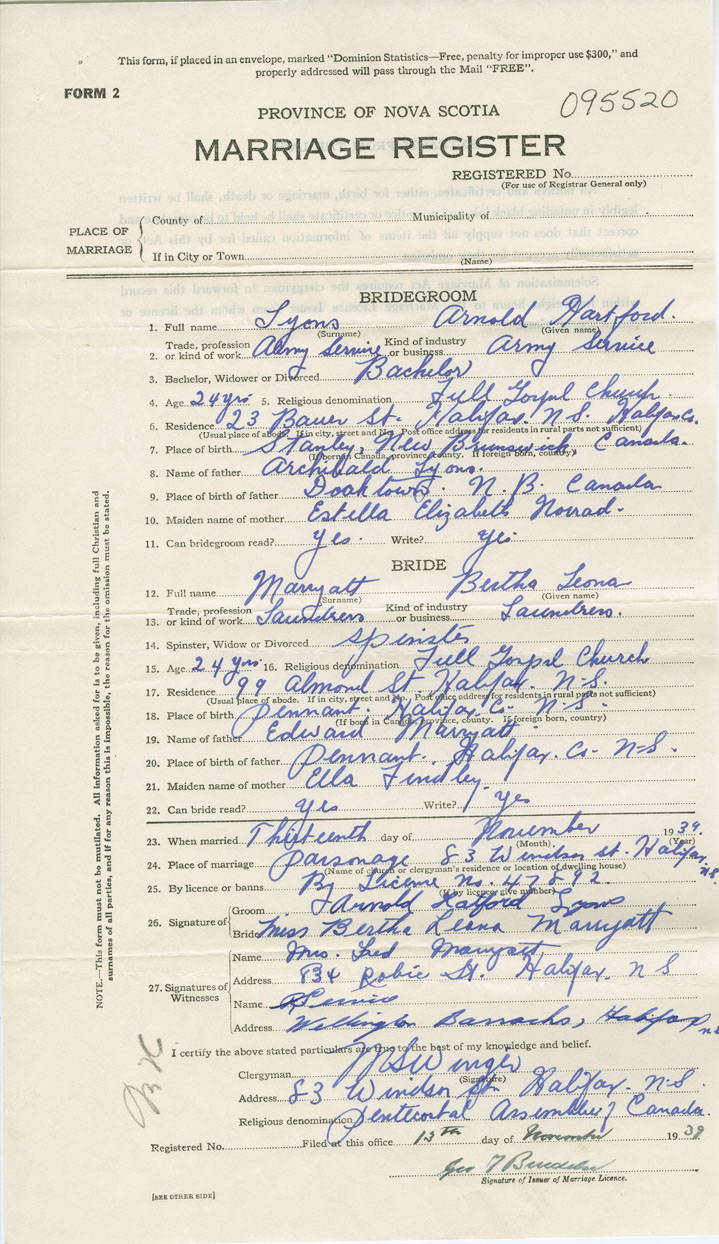 This form, if placed in an envelope, marked "Dominion Statistics—Free, penalty for improper use $300," and
properly addressed will pass through the Mail "FREE".
FORM 2
095520
PROVINCE OF NOVA SCOTIA
MARRIAGE REGISTER
REGISTERED No.
(For use of Registrar General only)
PLACE OF MARRIAGE
County of Municipality of
If in City or Town
(Name)
BRIDEGROOM
1. Full name Lyons Arnold Hartford.
(Surname) (Given name)
2. Trade, profession or kind of work Army Service Kind of industry or business Army Service
3. Bachelor, Widower or Divorced Bachelor
4. Age 24 yrs 5. Religious denomination Full Gospel Church
6. Residence 23 Bauer St. Halifax. N.S. Halifax Co.
(Usual place of abode. If in city, street and No. Post office address for residents in rural parts not sufficient)
7. Place of birth Stanley, New Brunswick Canada.
(If born in Canada, province, county. If foreign born, country)
8. Name of father Archibald Lyons.
9. Place of birth of father Doaktown. N.B. Canada
10. Maiden name of mother Estella Elizabeth Norrad.
11. Can bridegroom read? yes. Write? yes.
BRIDE
12. Full name Marryatt Bertha Leona
(Surname) (Given name)
13. Trade, profession or kind of work Laundress Kind of industry or business Laundress.
14. Spinster, Widow or Divorced Spinster
15. Age 24 yrs. 16. Religious denomination Full Gospel Church
17. Residence 99 Almond St. Halifax. N.S.
(Usual place of abode. If in city, street and No. Post office address for residents in rural parts not sufficient)
18. Place of birth Pennant. Halifax. Co- N-S.
(If born in Canada, province, county. If foreign born, country)
19. Name of father Edward Marryatt.
20. Place of birth of father Pennant. Halifax. Co- N-S.
21. Maiden name of mother Ella Findley
22. Can bride read? yes Write? yes
23. When married Thirteenth day of November 1939.
(Month) (Year)
24. Place of marriage Parsonage 83 Windsor st. Halifax. N.S.
(Name of church or clergyman's residence or location of dwelling house)
25. By licence or banns By License No. 47892.
(If by licence, give number)
26. Signature of Groom Arnold Hatford Lyons
Bride Miss Bertha Leona Marryatt
27. Signatures of Witnesses
Name Mrs. Fred Marryatt
Address 134 Robie St. Halifax. N S
Name
Address Wellington Barracks, Halifax N.S
I certify the above stated particulars are true to the best of my knowledge and belief.
Clergyman Winger
(Signature)
Address 83 Windsor st Halifax. N-S.
Religious denomination Pentecostal Assemblies of Canada.
Registered No. Filed at this office 13th day of November 1939.
Signature of Issuer of Marriage Licence.
[SEE OTHER SIDE]
NOTE.—This form must not be mutilated. All information asked for is to be given, including full Christian and
surnames of all parties, and if for any reason this is impossible, the reason for the omission must be stated.